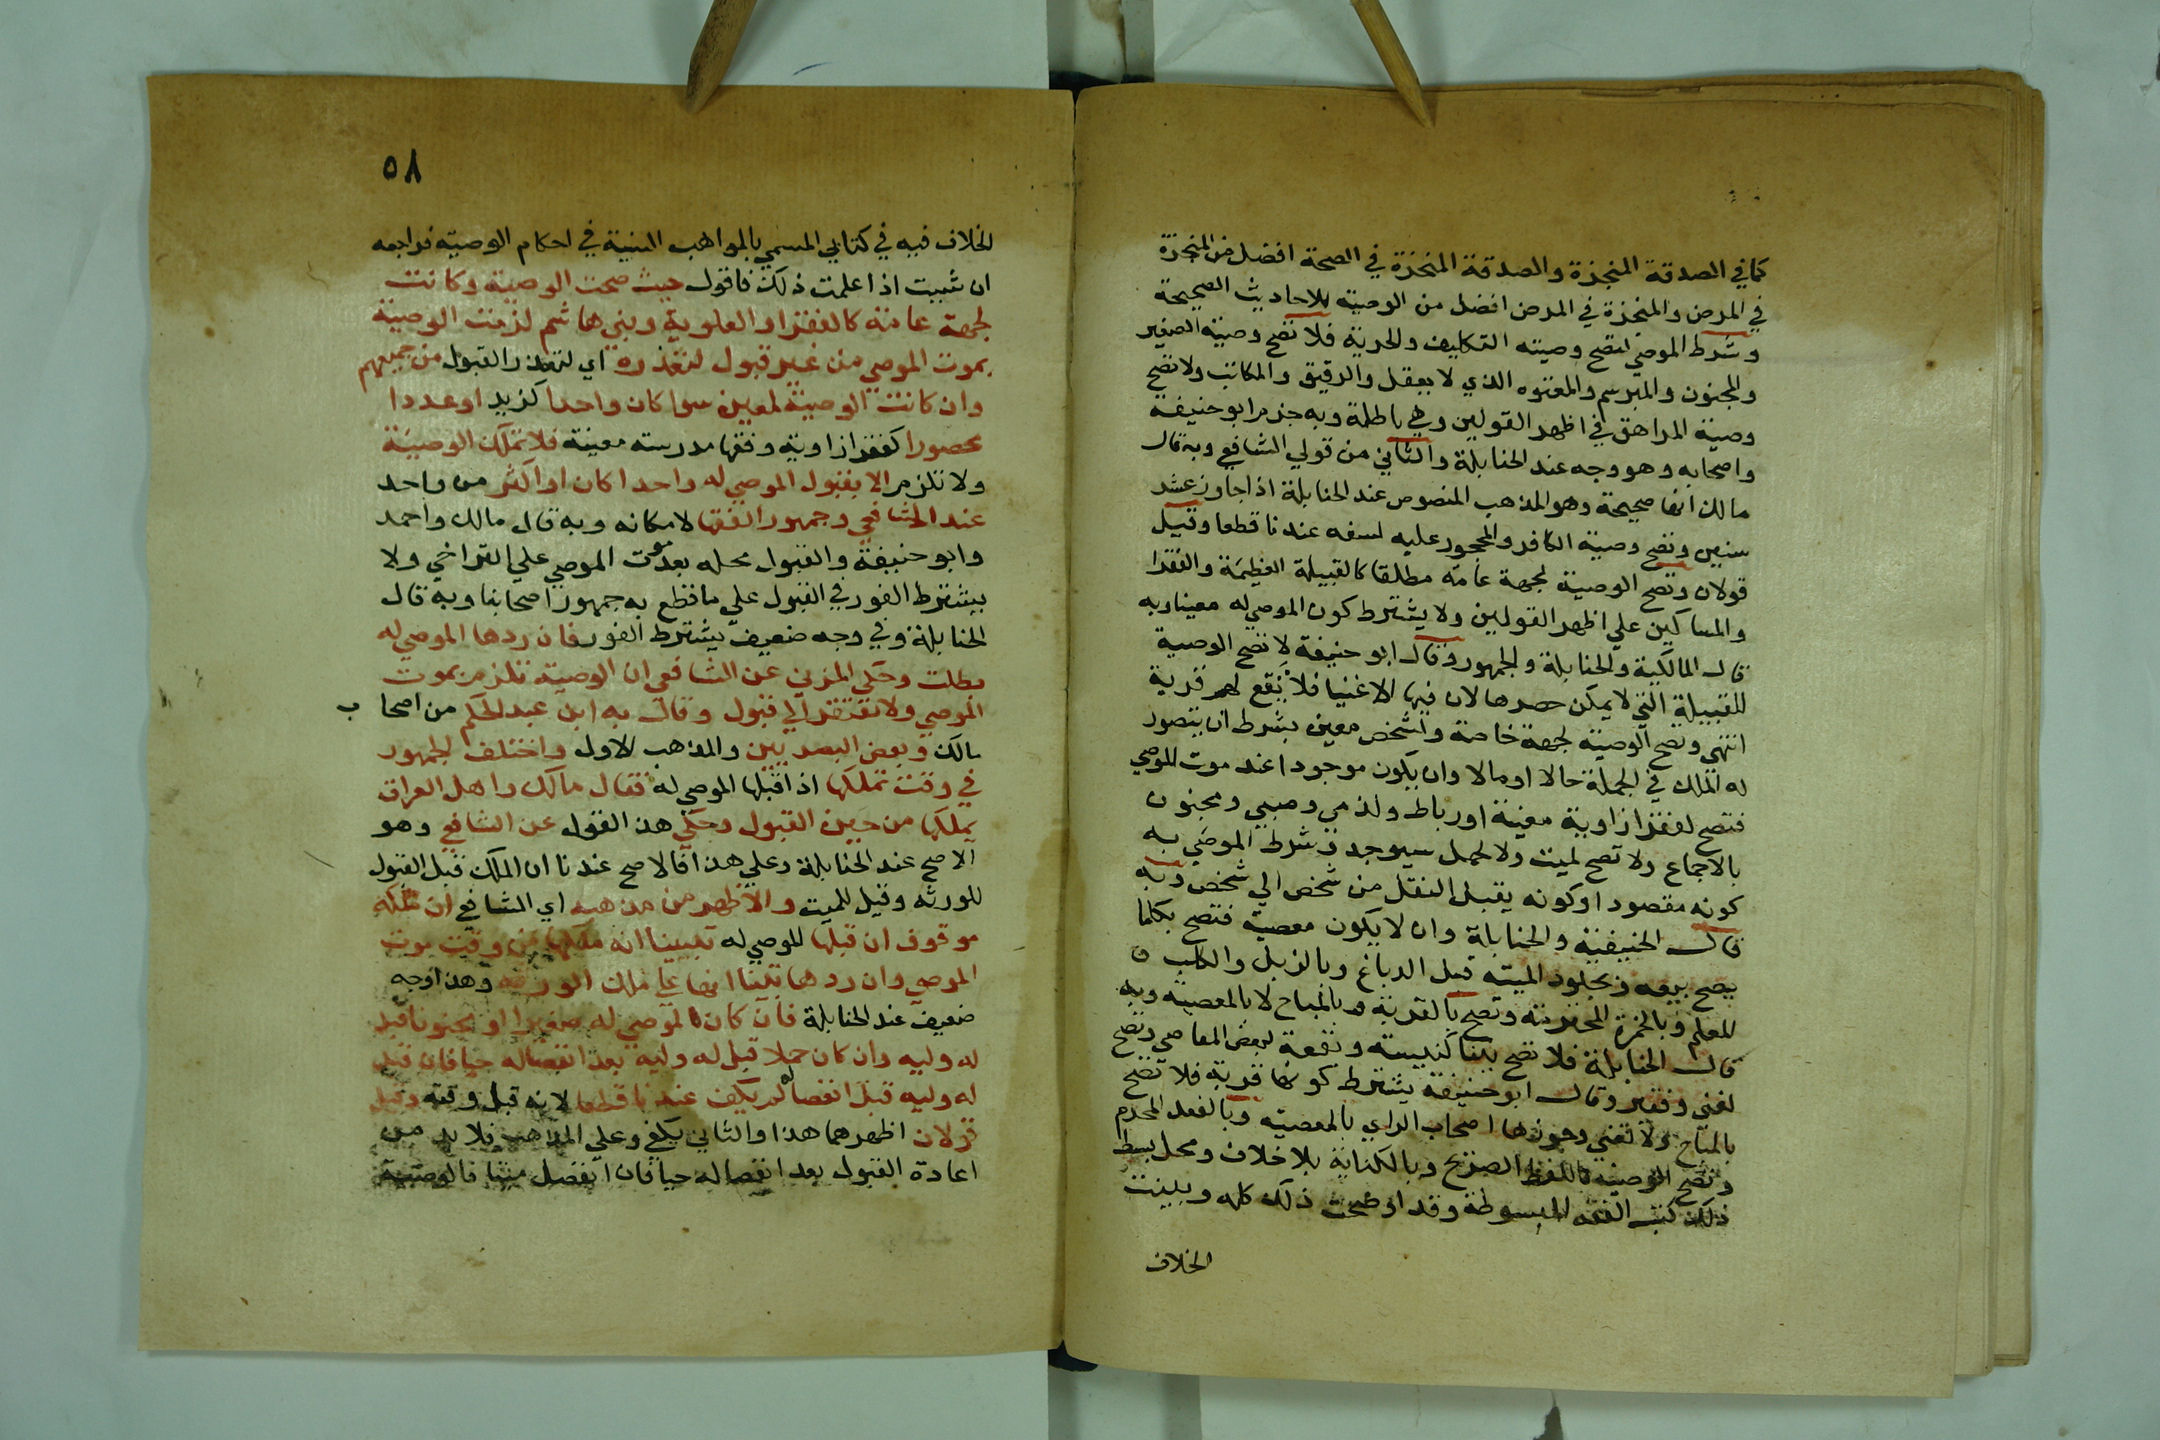 كما في الصدقة المنجزة والصدقة المنجزة في الصحة افضل من المنجزة
في المرض والمنجزة في المرض افضل من الوصية للاحاديث الصحيحة
وشرط الموصي لتصح وصيته التكليف والحرية فلا تصح وصية الصغير
والمجنون والمبرسم والمعتوه الذي لا يعقل والرقيق والمكاتب ولا تصح
وصية المراهق في اظهر القولين وهي باطلة وبه جزم ابو حنيفة
واصحابه وهو وجه عند الحنابلة والثاني من قولي الشافعي وبه قال
مالك انها صحيحة وهو المذهب المنصوص عند الحنابلة اذا جاوز عشر
سنين وتصح وصية الكافر والمحجور عليه لسفه عندنا قطعا وقيل
قولان وتصح الوصية لجهة عامة مطلقا كالقبيلة العظيمة والفقرا
والمساكين علي اظهر القولين ولا يشترط كون الموصي له معينا وبه
قال المالكية والحنابلة والجمهور وقال ابو حنيفة لا تصح الوصية
للقبيلة التي لا يمكن حصرها لان فيها الاغنيا فلا يقع لهم قربة
انتهي وتصح الوصية لجهة خاصة ولشخص معين بشرط ان يتصور
له الملك في الجملة حالا او مالا وان يكون موجودا عند موت الموصي
فتصح لفقرا زاوية معينة او رباط ولذمي وصبي ومجنون
بالاجماع ولا تصح لميت ولا لحمل سيوجد وشرط الموصي به
كونه مقصودا وكونه يقبل النقل من شخص الي شخص وبه
قال الحنيفية والحنابلة وان لا يكون معصية فتصح بكلما
يصح بيعه وبجلود الميتة قبل الدباغ وبالزبل والكلب
المعلم وبالخمرة المحترمة وتصح بالقربة وبالمباح لا بالمعصية وبه
قال الحنابلة فلا تصح ببنا كنيسة وبقعة لبعض المعاصي وتصح
لغني وفقير وقال ابو حنيفة يشترط كونها قربة فلا تصح
بالمباح ولا لغني وجوزها اصحاب الراي بالمعصية وبالفعل المحرم
وتصح الوصية باللفظ الصريح وبالكناية بلا خلاف ومحل بسط
ذلك كتب الفقه المبسوطة وقد اوضحت ذلك كله وبينت
الخلاف
٥٨
الخلاف فيه في كتابي المسمي بالمواهب السنية في احكام الوصية فراجعه
ان شيت اذا علمت ذلك فاقول حيث صحت الوصية وكانت
لجهة عامة كالفقرا والعلوية وبني هاشم لزمت الوصية
بموت الموصي من غير قبول لتعذره اي لتعذر القبول من جميعهم
وان كانت الوصية لمعين سوا كان واحدا كزيد او عددا
محصورا كفقرا زاوية وفقها مدرسة معينة فلا تملك الوصية
ولا تلزم الا بقبول الموصي له واحدا كان او اكثر من واحد
عند الشافعي وجمهور الفقها لامكانه وبه قال مالك واحمد
وابو حنيفة والقبول محله بعد موت الموصي علي التراخي ولا
يشترط الفور في القبول علي ما قطع به جمهور اصحابنا وبه قال
الحنابلة وفي وجه ضعيف يشترط الفور فان ردها الموصي له
بطلت وحكي المزني عن الشافعي ان الوصية تلزم بموت
الموصي ولا تفتقر الي قبول وقال به ابن عبد الحكم من اصحاب
مالك وبعض البصريين والمذهب الاول واختلف الجمهور
في وقت تملكها اذا قبلها الموصي له فقال مالك واهل العراق
يملكها من حين القبول وحكي هذا القول عن الشافعي وهو
الاصح عند الحنابلة وعلي هذا فالاصح عندنا ان الملك قبل القبول
للورثه وقيل للميت والاظهر من مذهبه اي الشافعي ان ملكه
موقوف ان قبلها الموصي له تبينا انه ملكها من وقت موت
الموصي وان ردها تبينا انها علي ملك الورثة وهذا وجه
ضعيف عند الحنابلة فان كان الموصي له صغيرا او مجنونا قبل
له وليه وان كان حملا قبل له وليه بعد انفصاله حيا فان قبل
له وليه قبل انفصاله لم يكف عندنا قطعا لانه قبل وقته وقيل
قولان اظهرهما هذا والثاني يكفي وعلي المذهب فلا بد من
اعادة القبول بعد انفصاله حيا فان انفصل ميتا فالوصية